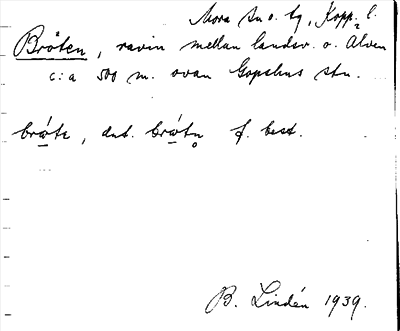 Mora sn o. tg, Kopp. l.
Bråten, ravin mellan landsv. o. Älven
c:a 500 m. ovan Gopshus stn.
bråtn, dat. bråtn f. best.
B. Lindén 1939.